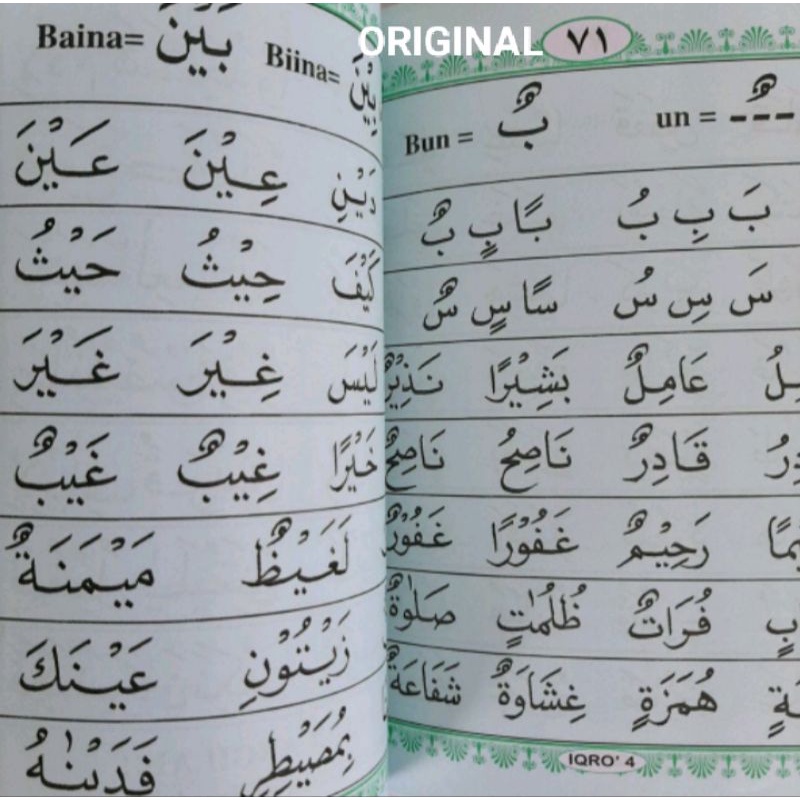 ORIGINAL
٧١
un = ---ٌ Bun = بٌ
بَ بِ بُ بًا بٍ بٌ
سَ سِ سُ سًا سٍ سٌ
عَامِلٌ بَشِيْرًا نَذِيْرٌ
قَادِرٌ نَاصِحُ نَاصِحٌ
رَحِيْمٌ غَفُوْرًا غَفُوْرٌ
فُرَاتٌ ظُلُمٰتٍ صَلٰوةٌ
هُمَزَةٍ غِشَاوَةٌ شَفَاعَةٌ
IQRO' 4
Baina= بَيْنَ Biina= بِيْنَ
دَيْنِ عِيْنَ عَيْنَ
كَيْفَ حِيْثُ حَيْثُ
لَيْسَ غِيْرَ غَيْرَ
خَيْرًا غِيْبٌ غَيْبٌ
لَغَيْظٌ مَيْمَنَةٌ
زَيْتُوْنِ عَيْنَكَ
بِمُصَيْطِرٍ فَدَيْنٰهُ